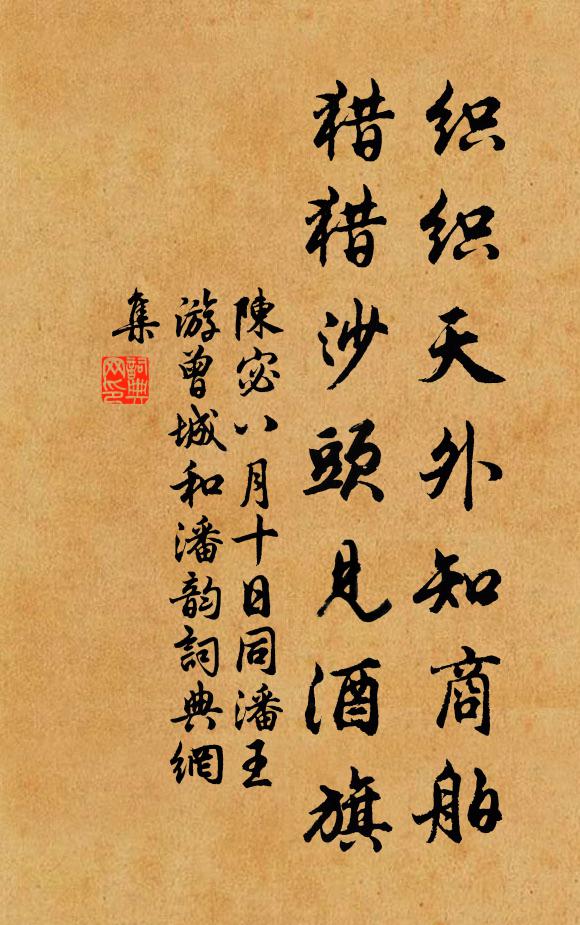 织织天外知商舶
猎猎沙頭見酒旗
陳宓八月十日同潘王
游曾城和潘韵詞典網
集
詞典網印